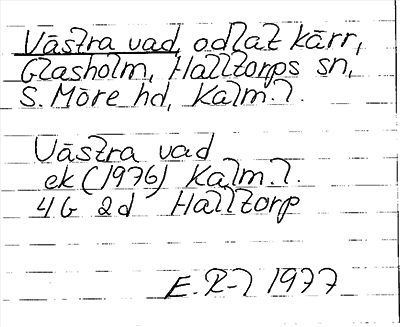 Västra vad, odlat kärr,
Glasholm, Halltorps sn,
S. Möre hd, Kalm. l.
Västra vad
ek (1976) Kalm. l.
4G 2d Halltorp
E. R-l 1977